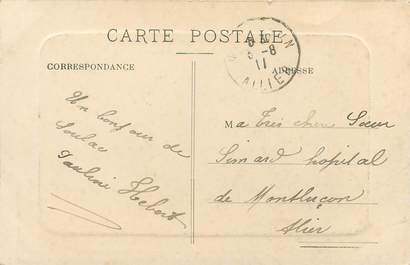 CARTE POSTALE
CORRESPONDANCE
ADRESSE
8
11
ALLIER
Un bonjour de
Soulac
Pauline Hebert
Ma Très cher Sœur
Simard hopital
de Montluçon
Alier